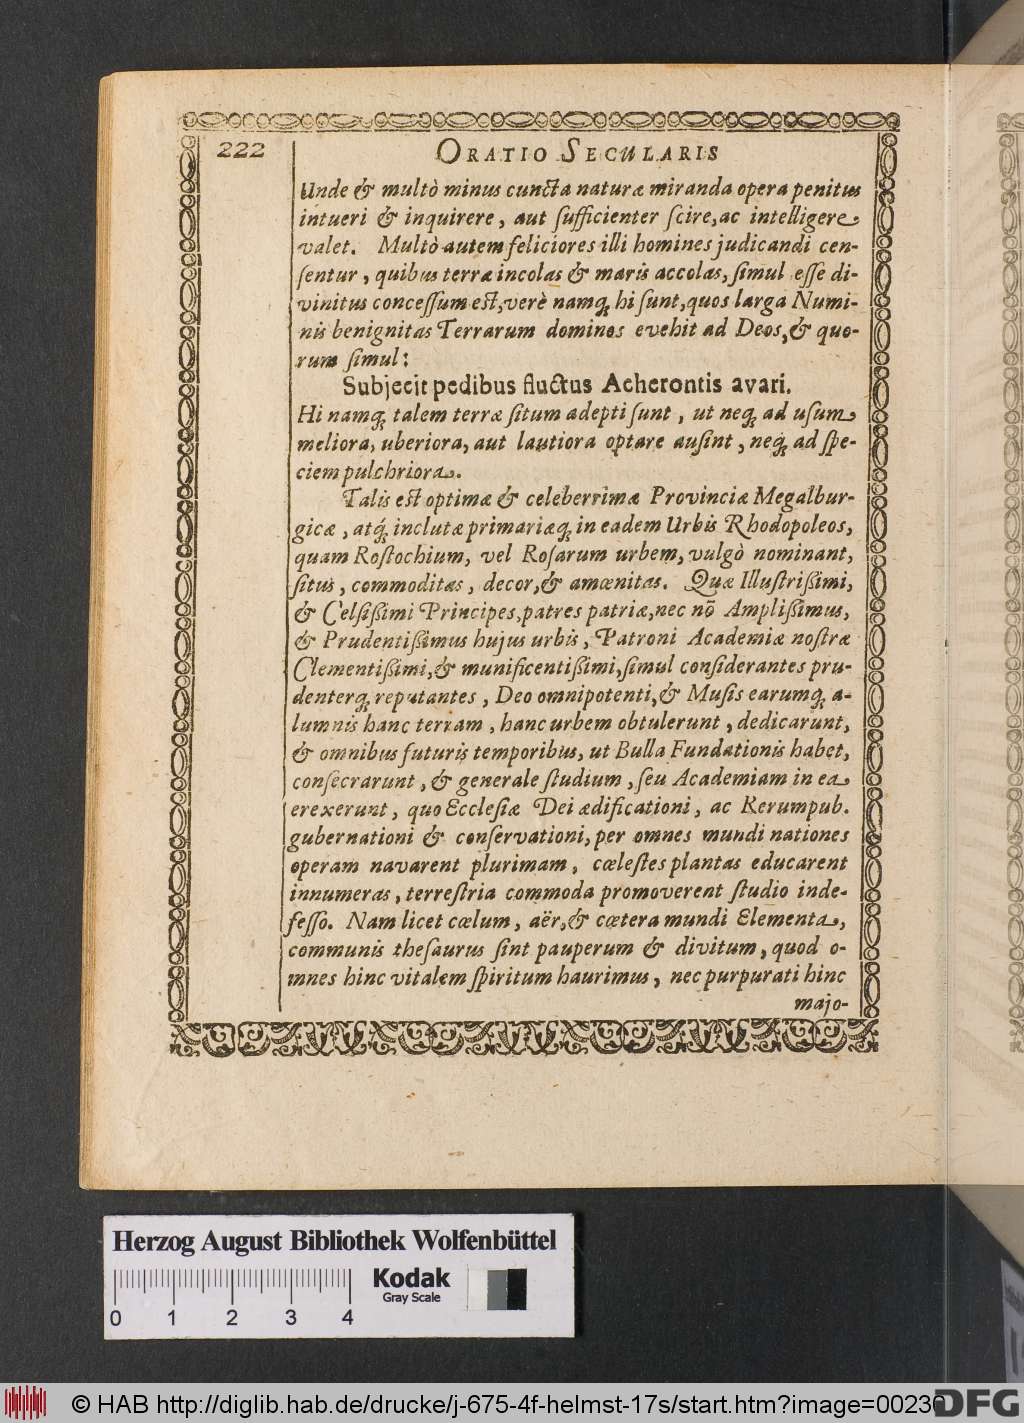 222
ORATIO SECULARIS
Unde & multò minus cuncta naturæ miranda opera penitus
intueri & inquirere, aut ſufficienter ſcire, ac intelligere
valet. Multò autem feliciores illi homines judicandi cen-
ſentur, quibus terræ incolas & maris accolas, ſimul eſſe di-
vinitus conceſſum eſt, verè namq́; hi ſunt, quos larga Numi-
nis benignitas Terrarum dominos evehit ad Deos, & quo-
rum ſimul:
Subjecit pedibus fluctus Acherontis avari.
Hi namq́; talem terræ ſitum adepti ſunt, ut neq́; ad uſum
meliora, uberiora, aut lautiora optare auſint, neq́; ad ſpe-
ciem pulchriora.
Talis eſt optimæ & celeberrimæ Provinciæ Megalbur-
gicæ, atq́; inclutæ primariæq́; in eadem Urbis Rhodopoleos,
quam Roſtochium, vel Roſarum urbem, vulgò nominant,
ſitus, commoditas, decor, & amœnitas. Quæ Illuſtrißimi,
& Celſißimi Principes, patres patriæ, nec nō Amplißimus,
& Prudentißimus hujus urbis, Patroni Academiæ noſtræ
Clementißimi, & munificentißimi, ſimul conſiderantes pru-
denterq́; reputantes, Deo omnipotenti, & Muſis earumq́; a-
lumnis hanc terram, hanc urbem obtulerunt, dedicarunt,
& omnibus futuris temporibus, ut Bulla Fundationis habet,
conſecrarunt, & generale ſtudium, ſeu Academiam in ea
erexerunt, quo Eccleſiæ Dei ædificationi, ac Rerumpub.
gubernationi & conſervationi, per omnes mundi nationes
operam navarent plurimam, cœleſtes plantas educarent
innumeras, terreſtria commoda promoverent ſtudio inde-
feſſo. Nam licet cœlum, aër, & cœtera mundi Elementa,
communis theſaurus ſint pauperum & divitum, quod o-
mnes hinc vitalem ſpiritum haurimus, nec purpurati hinc
majo-
Herzog August Bibliothek Wolfenbüttel
Kodak
Gray Scale
0 1 2 3 4
© HAB http://diglib.hab.de/drucke/j-675-4f-helmst-17s/start.htm?image=00230
DFG